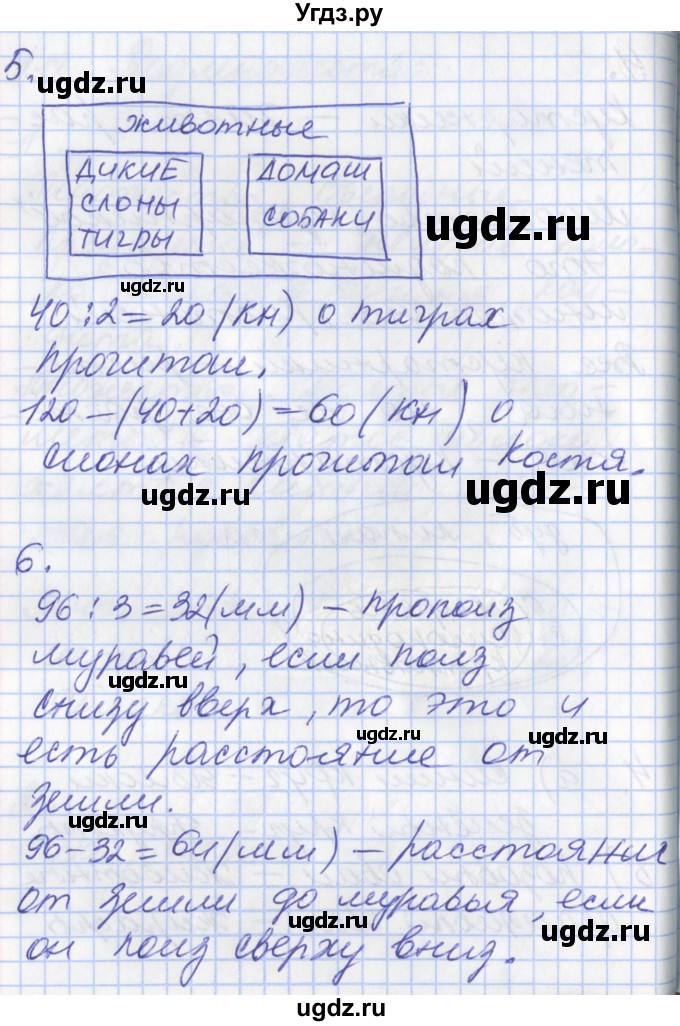 Угдз.ру
5.
ugdz.ru
животные
ДИКИЕ
СЛОНЫ
ТИГРЫ
ДОМАШ
СОБАКИ
ugdz.ru
ugdz.ru
40 : 2 = 20 (кн) о тиграх
прочитал.
120 – (40+20) = 60 (кн) о
слонах прочитал Костя.
ugdz.ru
ugdz.ru
6.
96 : 3 = 32 (мм) – прополз
муравей, если полз
ugdz.ru
снизу вверх, то это и
ugdz.ru
есть расстояние от
земли.
ugdz.ru
96 – 32 = 64 (мм) – расстояние
от земли до муравья, если
ugdz.ru
ugdz.ru
он полз сверху вниз.
ugdz.ru